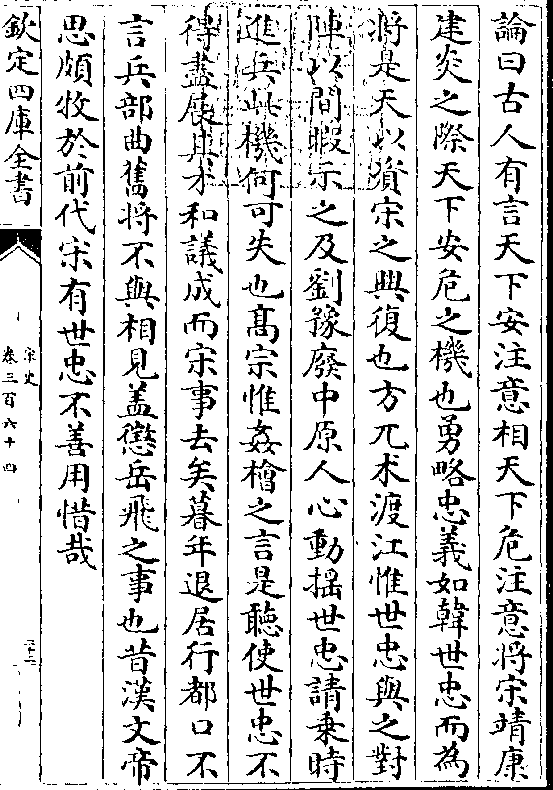 論曰古人有言天下安注意相天下危注意將宋靖康
建炎之際天下安危之機也勇略忠義如韓世忠而為
將是天以資宋之興復也方兀术渡江惟世忠與之對
陣以閒暇示之及劉豫廢中原人心動揺世忠請乗時
進兵此機何可失也髙宗惟姦檜之言是聽使世忠不
得盡展其才和議成而宋事去矣暮年退居行都口不
言兵部曲舊將不與相見盖懲岳飛之事也昔漢文帝
思頗牧於前代宋有世忠不善用惜哉
欽定四庫全書
宋史
卷三百六十四
三十二